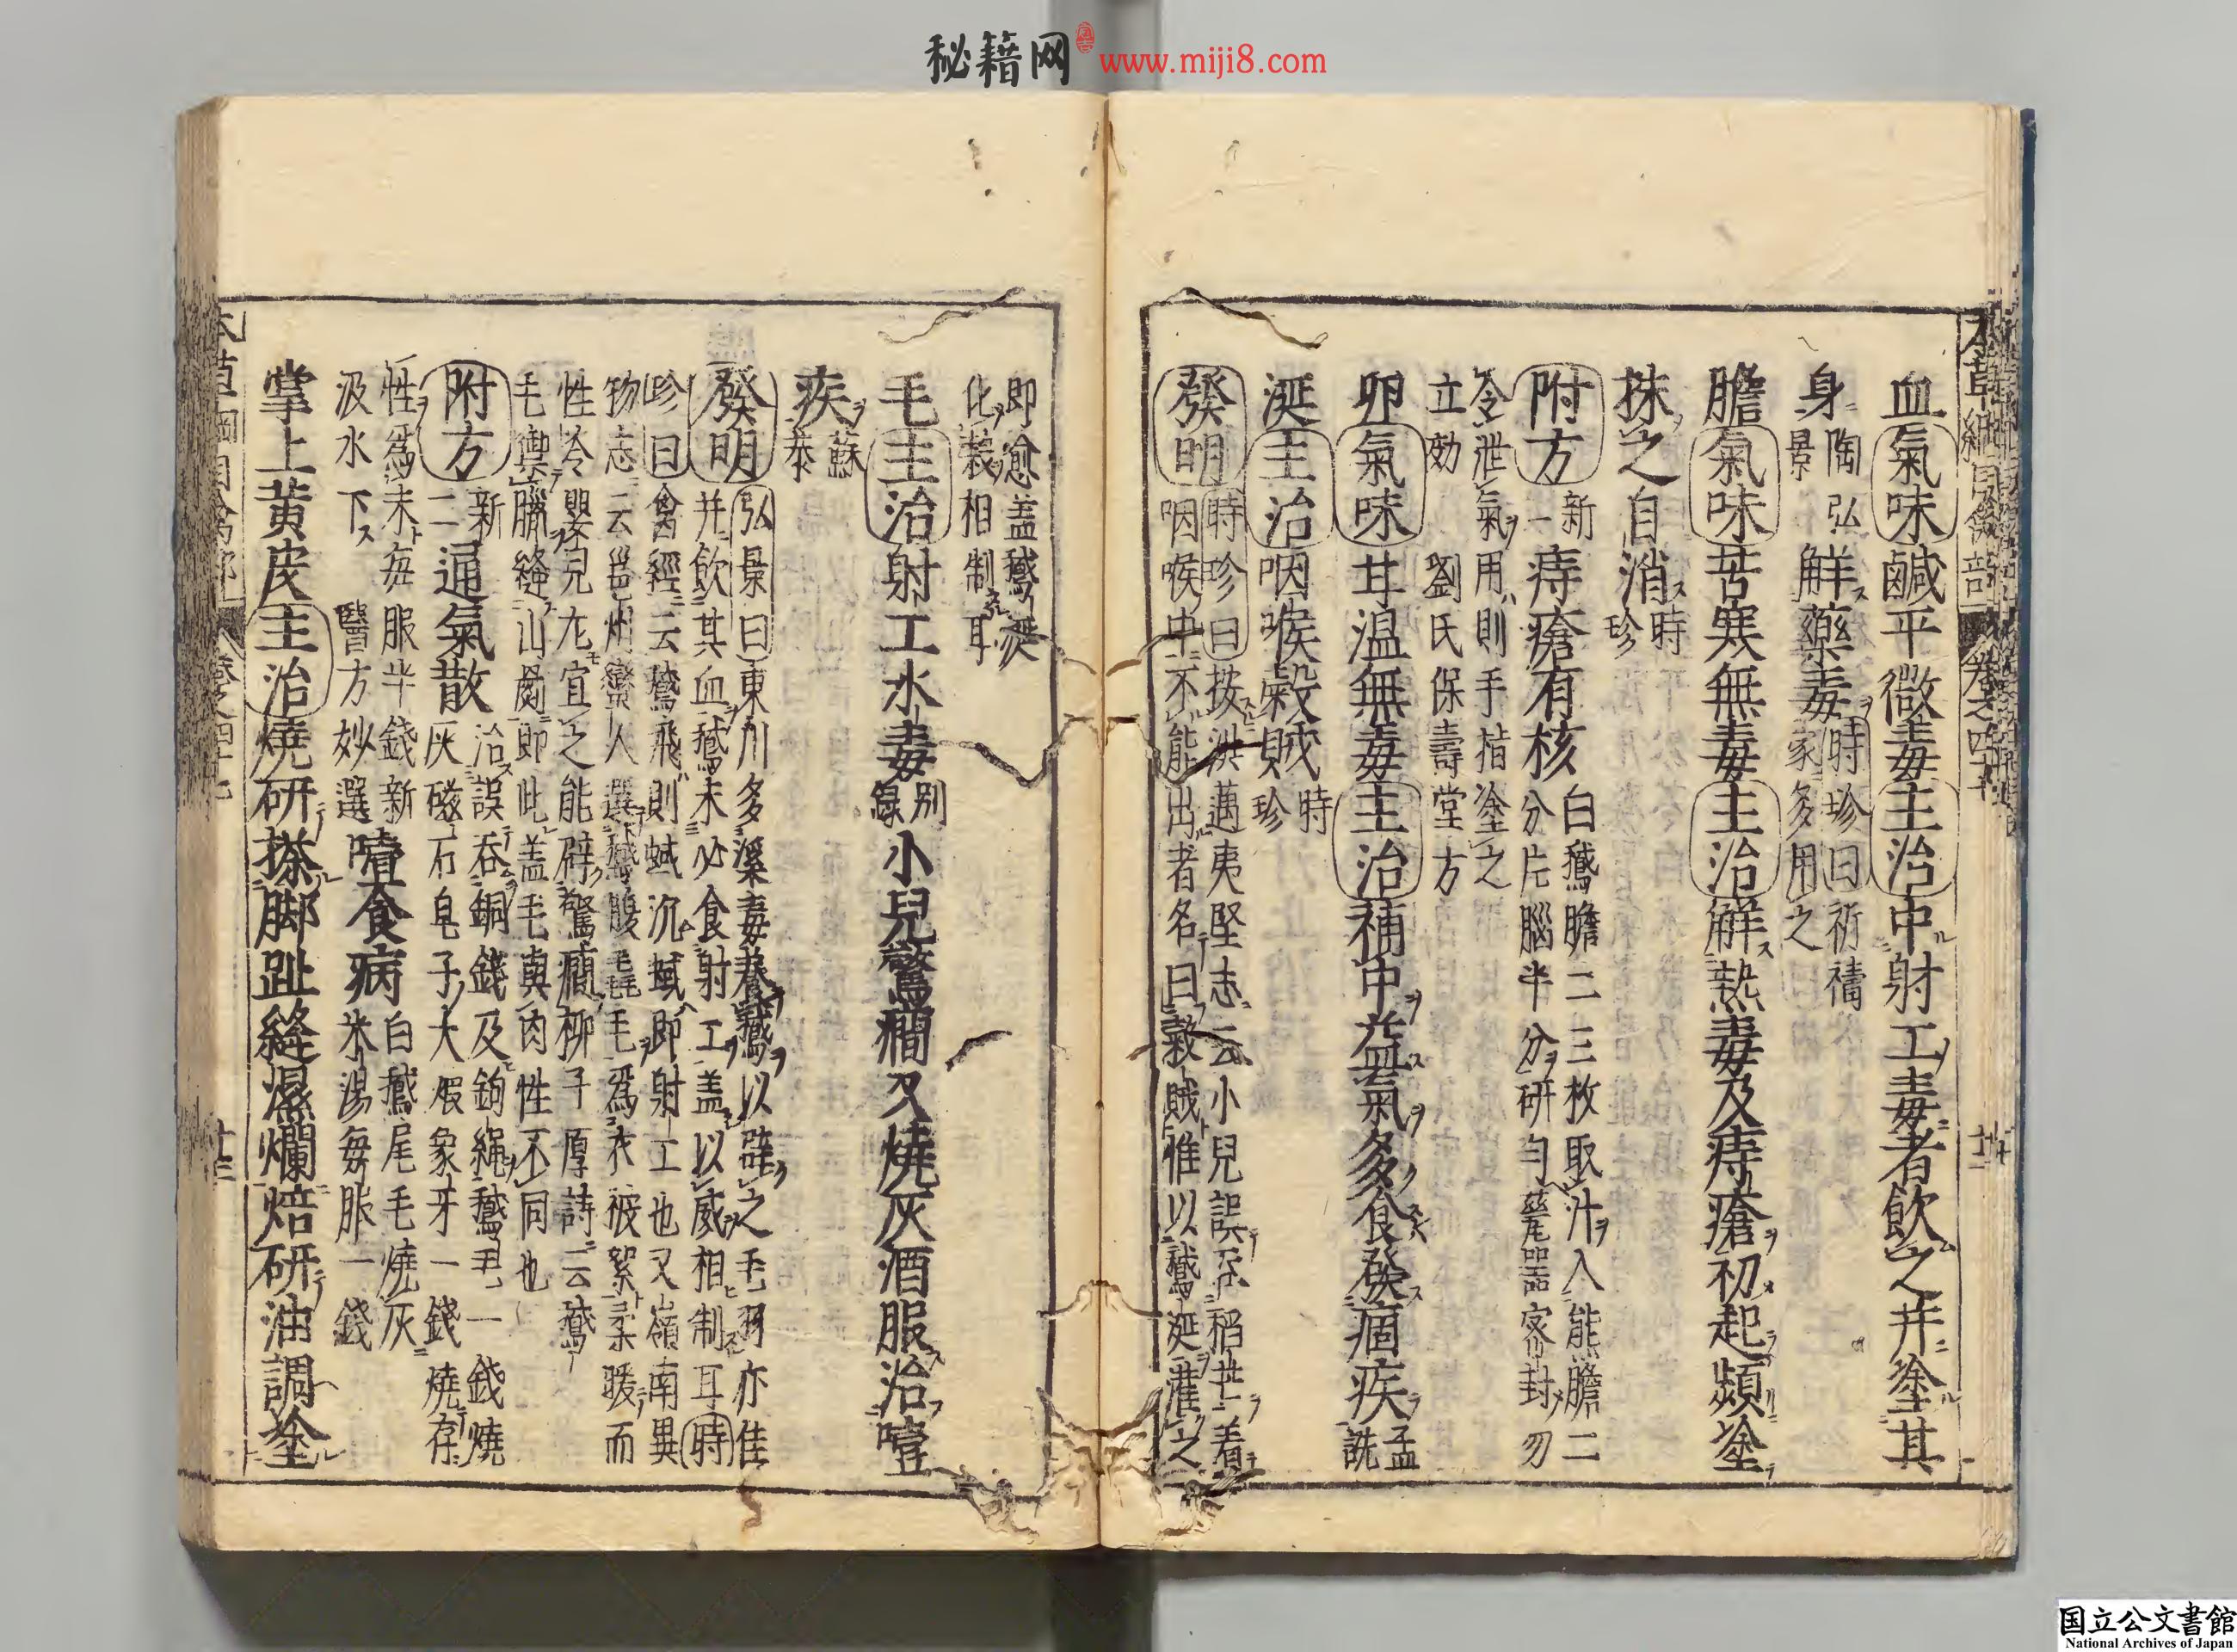 秘籍网 www.miji8.com
血氣味鹹平微毒主治中射工毒者飲之并塗其
身陶弘景解藥毒時珍曰祈禱家多用之
膽氣味苦寒無毒主治解熱毒及痔瘡初起頻塗
抹之自消時珍
附方新一痔瘡有核白鵞膽二三枚取汁入熊膽二
分片腦半分研勻磁器密封勿
令泄氣用則手指塗之
立効 劉氏保壽堂方
卵氣味甘温無毒主治補中益氣多食發痼疾孟詵
涎主治咽喉穀賊時珍
發明時珍曰按洪邁夷堅志云小兒誤吞稻芒着
咽喉中不能出者名曰穀賊惟以鵞涎灌之
即愈盖鵞涎
化穀相制耳
毛主治射工水毒别録小兒驚癇又燒灰酒服治噎
疾蘇恭
發明弘景曰東川多溪毒養鵞以辟之毛羽亦佳
并飲其血鵞未必食射工盖以威相制耳時
珍曰禽經云鵞飛則蜮沉蜮即射工也又嶺南異
物志云邕州蠻人選鵞腹毳毛爲衣被絮柔暖而
性冷嬰兒尤宜之能辟驚癇柳子厚詩云鵞
毛禦臘縫山罽即此盖毛與肉性不同也
附方新二通氣散治誤吞銅錢及鉤繩鵞毛一錢燒
灰磁石皂子大煅象牙一錢燒存
性爲末毎服半錢新
汲水下 醫方妙選 噎食病白鵞尾毛燒灰
米湯毎服一錢
掌上黄皮主治燒研搽脚趾縫濕爛焙研油調塗
本草綱目禽部 卷之四十七
廿二
国立公文書館
National Archives of Japan